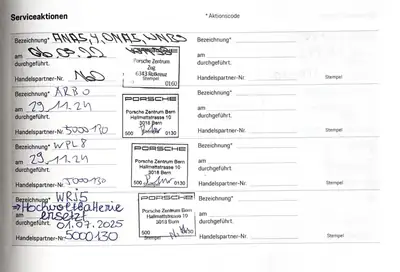 Serviceaktionen
*Aktionscode
Bezeichnung* ANA5, Y, ONA5, WNB5
Bezeichnung*
am 06.09.22
am
durchgeführt.
durchgeführt.
Porsche Zentrum
Zug
6343 Rotkreuz
Stempel
0160
Handelspartner-Nr.
Handelspartner-Nr.
Stempel
Bezeichnung* ARB0
Bezeichnung*
am 29.11.24
am
durchgeführt.
durchgeführt.
PORSCHE
Porsche Zentrum Bern
Hallmattstrasse 10
3018 Bern
500 0130
Handelspartner-Nr. 5000130
Handelspartner-Nr.
Stempel
Bezeichnung* WPL8
Bezeichnung*
am 29.11.24
am
durchgeführt.
durchgeführt.
PORSCHE
Porsche Zentrum Bern
Hallmattstrasse 10
3018 Bern
500 0130
Handelspartner-Nr. 5000130
Handelspartner-Nr.
Stempel
Bezeichnung* WRI5
Bezeichnung*
⇒ Hochvoltbatterie
am ersetzt
am
durchgeführt. 01.07.2025
durchgeführt.
PORSCHE
Porsche Zentrum Bern
Hallmattstrasse 10
3018 Bern
500 0130
Handelspartner-Nr. 5000130
Handelspartner-Nr.
Stempel